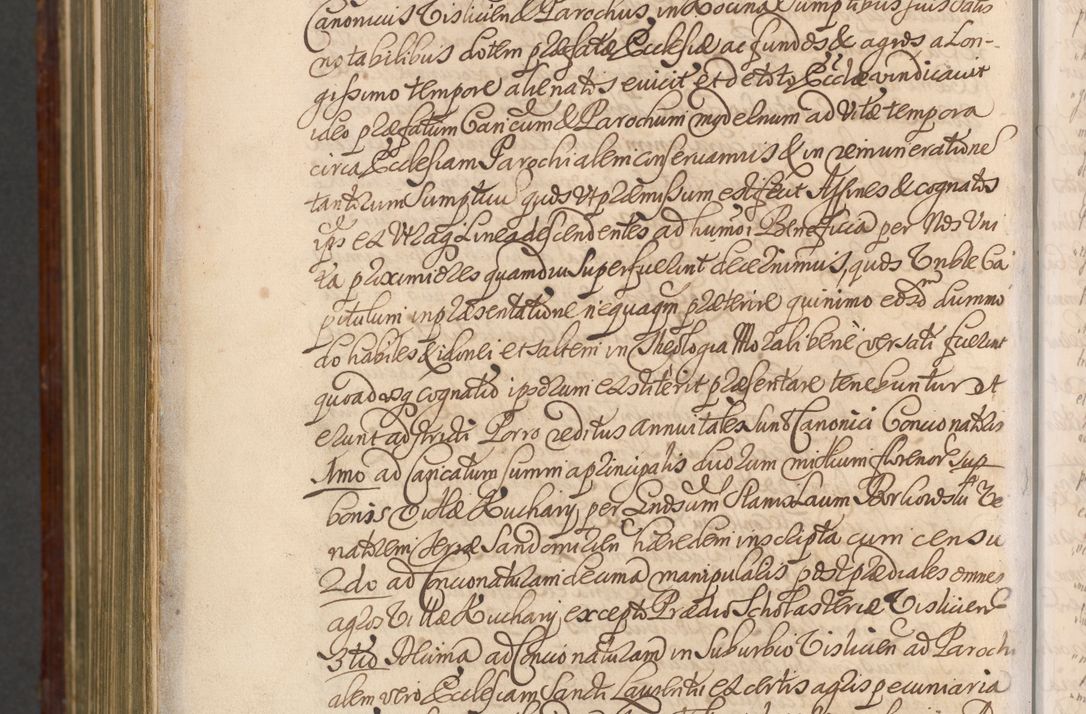 Canonicus Vislicien & Parochus, in Rocina Sumptibus suis satis
notabilibus dotem præfatæ Ecclesiæ ac fundos & agros a Lon-
gissimo tempore alienatos evicit, et de toto Ecclæ vindicavit
ideo præfatum Canicum & Parochum modelnum ad Vitæ tempora
circa Ecclesiam Parochialem conservamus & in remuneratione
tantorum Sumptuu quos Vt præmissum est fecit Affines & cognatos
ipſs ex Vtraq Linea descendentes ad humoi Beneficia per Nos Vni
ta proximiores quamdiu Superfuerint decernimus, quos Vnble Ca
pitulum in præsentatione nequaqm præterire quinimo eosdm dummo
do habiles & idonei et saltem in Theologia Morali bene versati fuerint
quoadusq cognatio ipsorum exstiterit præsentare tenebuntur et
erunt adstricti Porro reditus annui tales sunt Canonici Concionatoris
1mo ad Caricatum summi aprincipalis duorum millium florenor Sup
bonis Villæ Kuchary, per Gndsum Stanislaum Borkowski Ve
natorem Terræ Sandomirien hæredem inscripta cum censu
2do ad Concionaturam decima manipularis post prædiales omnes
agros Villæ Kuchary, excepto Prædio Scholasteriæ Vislicien
3tio Decima ad Concionaturam in Suburbio Vislicien ad Parochi
alem vero Ecclesiam Sancti Laurentii ex certis agris pecuniaria